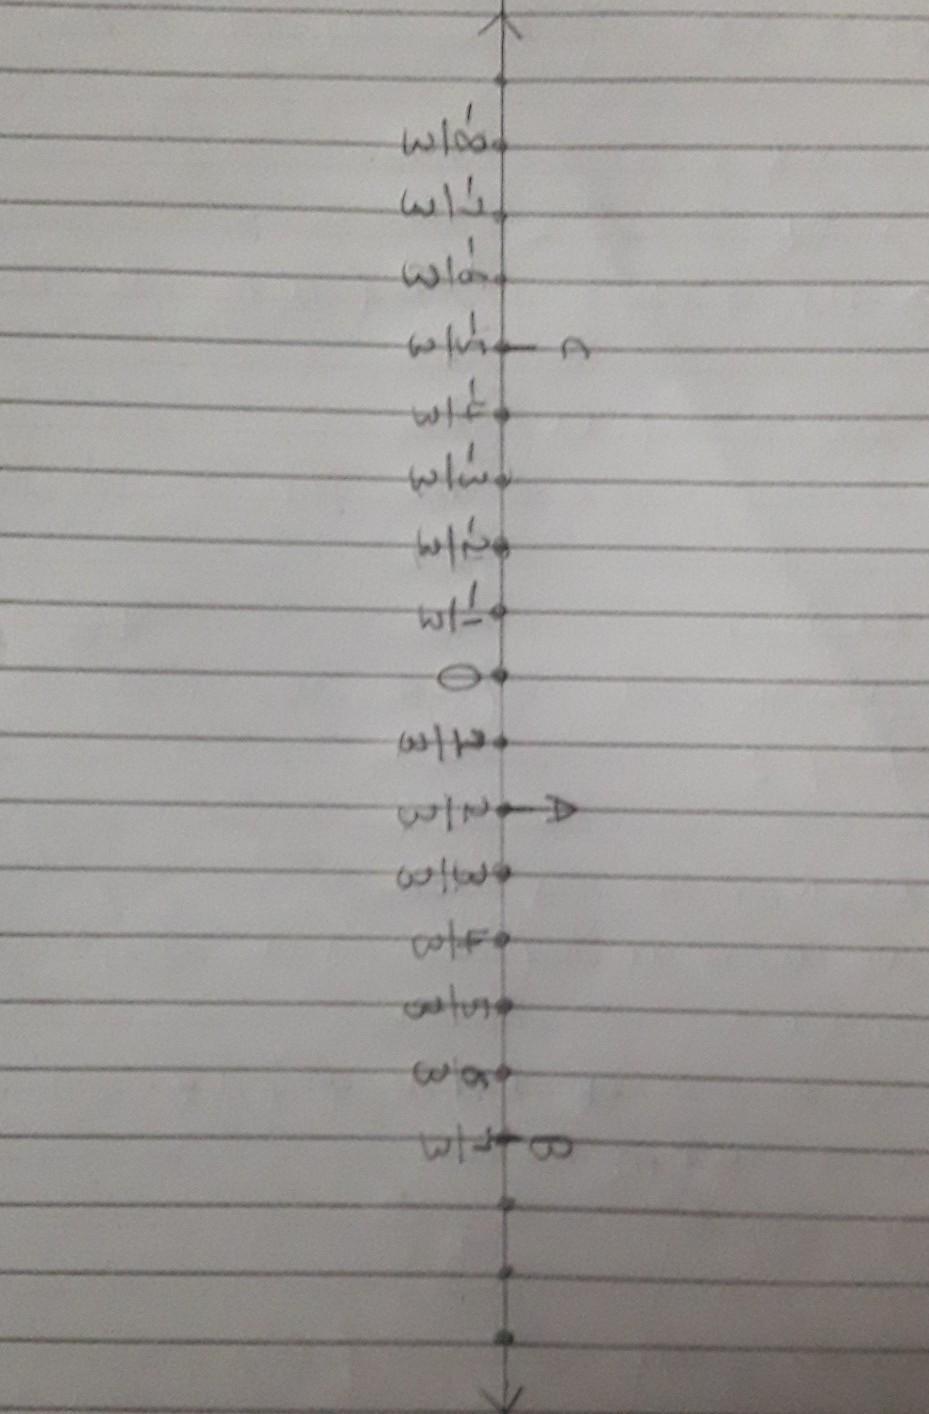 C A B
-8/3 -7/3 -6/3 -5/3 -4/3 -3/3 -2/3 -1/3 0 1/3 2/3 3/3 4/3 5/3 6/3 7/3